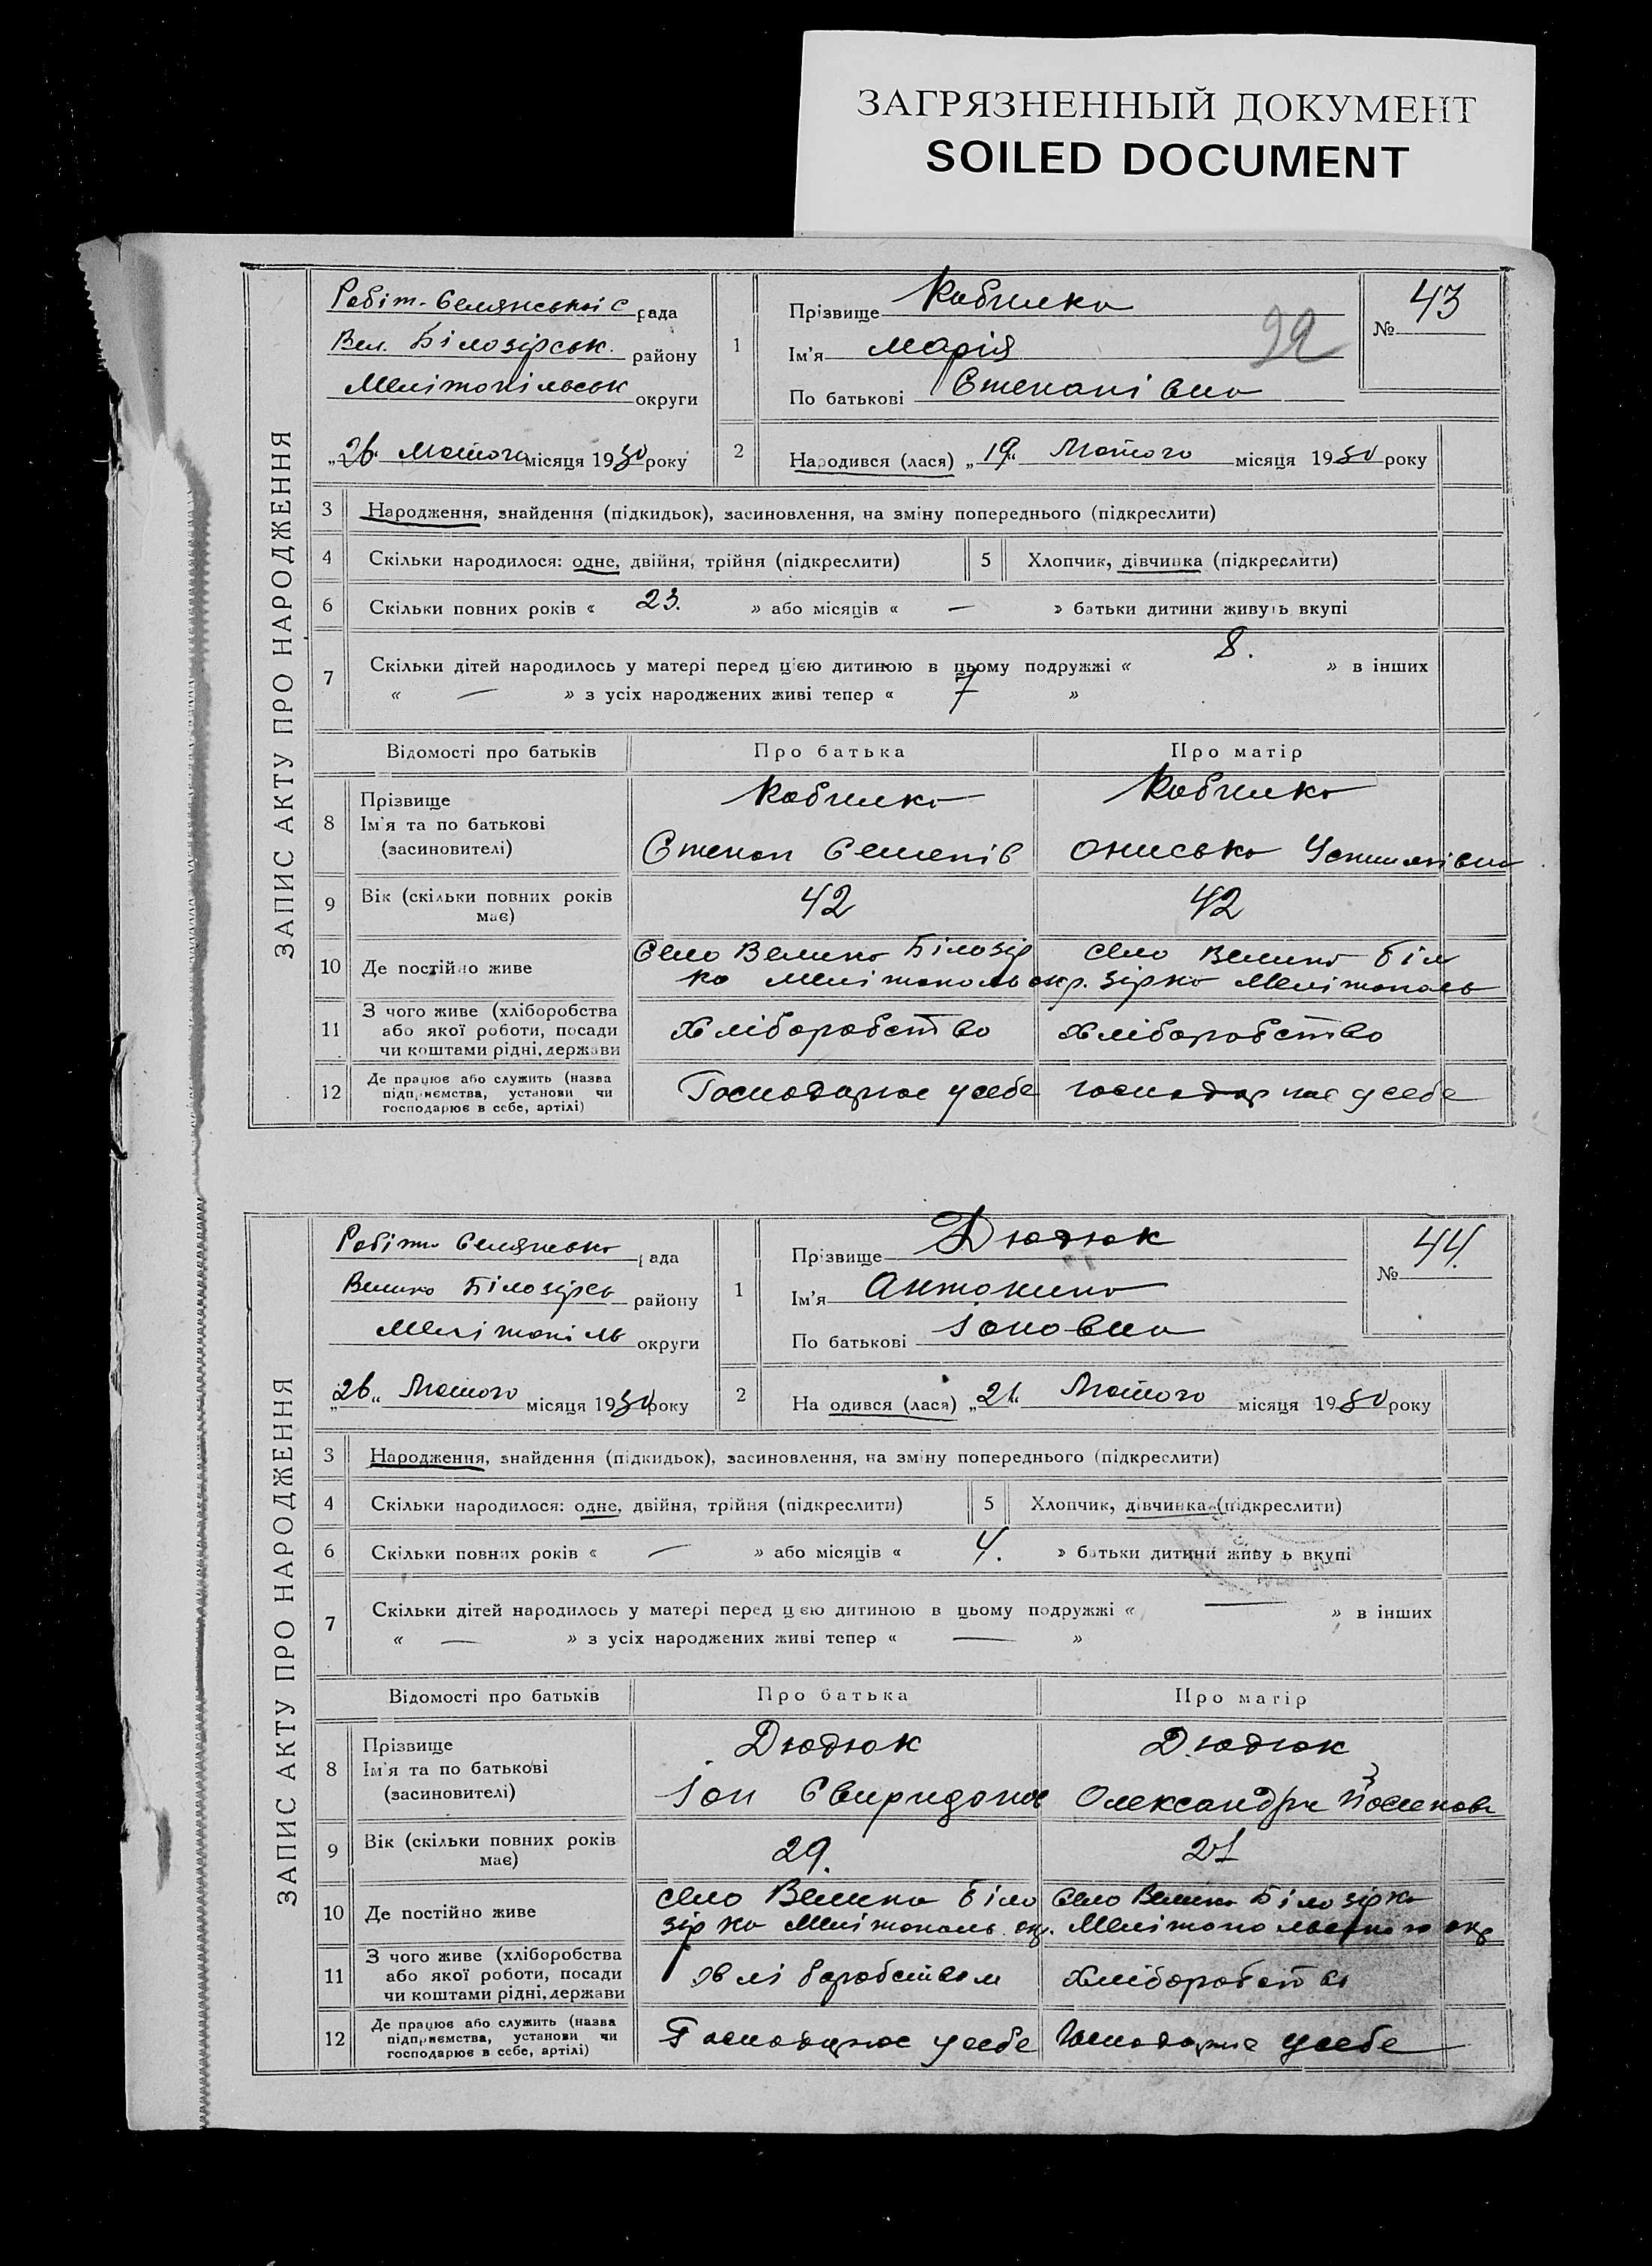 ЗАГРЯЗНЕННЫЙ ДОКУМЕНТ
SOILED DOCUMENT
ЗАПИС АКТУ ПРО НАРОДЖЕННЯ
Робіт.-Селянської с рада
Вел. Білозірськ. району
Мелітопільськ округи
„26“ Лютого місяця 1930 року
1
Прізвище Кобилка
Ім'я Марія
По батькові Степанівна
22
№ 43
2
Народився (лася) „19“ Лютого місяця 1930 року
3 Народження, знайдення (підкидьок), засиновлення, на зміну попереднього (підкреслити)
4 Скільки народилося: одне, двійня, трійня (підкреслити)
5 Хлопчик, дівчинка (підкреслити)
6 Скільки повних років « 23. » або місяців « — » батьки дитини живуть вкупі
7 Скільки дітей народилось у матері перед цією дитиною в цьому подружжі « 8. » в інших
« — » з усіх народжених живі тепер « 7 »
Відомості про батьків Про батька Про матір
8 Прізвище
Ім'я та по батькові
(засиновителі)
Кобилко
Степан Семенів
Кобилко
Ониська
9 Вік (скільки повних років
має)
42
42
10 Де постійно живе
Село Велика Білозір
ка Мелітополь окр.
село Велика Біло
зірка Мелітополь
11 З чого живе (хліборобства
або якої роботи, посади
чи коштами рідні, держави
Хліборобство
Хліборобство
12 Де працює або служить (назва
підприємства, установи чи
господарює в себе, артілі)
Господарює у себе
господарює у себе
ЗАПИС АКТУ ПРО НАРОДЖЕННЯ
Робітн Селянська рада
Велико Білозірсь району
Мелітопіль округи
„26“ Лютого місяця 1930 року
1
Прізвище Дюдюк
Ім'я Антонина
По батькові Іоновна
№ 44.
2
Народився (лася) „21“ Лютого місяця 1930 року
3 Народження, знайдення (підкидьок), засиновлення, на зміну попереднього (підкреслити)
4 Скільки народилося: одне, двійня, трійня (підкреслити)
5 Хлопчик, дівчинка (підкреслити)
6 Скільки повних років « — » або місяців « 4. » батьки дитини живуть вкупі
7 Скільки дітей народилось у матері перед цією дитиною в цьому подружжі « — » в інших
« — » з усіх народжених живі тепер « — »
Відомості про батьків Про батька Про матір
8 Прізвище
Ім'я та по батькові
(засиновителі)
Дюдюк
Іон Свиридонов
Дюдюк
Олександра
9 Вік (скільки повних років
має)
29.
21
10 Де постійно живе
село Велика Біло
зірка Мелітополь окр.
Село Велика Білозірка
Мелітопольського окр
11 З чого живе (хліборобства
або якої роботи, посади
чи коштами рідні, держави
Хліборобством
Хліборобство
12 Де працює або служить (назва
підприємства, установи чи
господарює в себе, артілі)
Господарює у себе
Господарює у себе